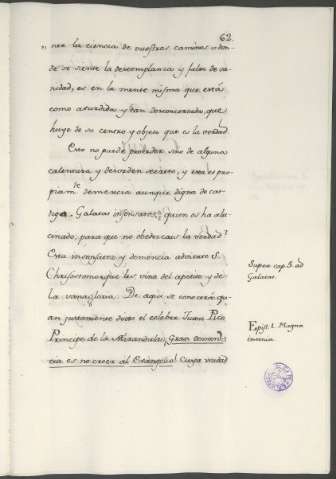 62.
" nec la ciencia de nuestros caminos: adon-
de se siente la destemplanza y falta de sa-
nidad, es en la mente misma que está
como aturdida y tan desconcertada, que
huye de su centro y objeto que es la verdad.
Esto no puede proceder sino de alguna
calentura y desorden secreto, y esta es pro-
piamte demencia aunque digna de cas-
tigo. Galatas insensatos, quien os ha alu-
cinado, para que no obedezcais la verdad?
Esta insensatez y demencia advierte S.
Chrisostomo que les vino del apetito y de
la vanagloria. De aqui se conocerá qu-
an justamente dixo el celebre Juan Pico
Principe de la Mirandula: Gran demen-
cia es no creer al Evangelio! Cuya verdad
Super cap. 3. ad
Galatas.
Epist. 1. Magna
insania